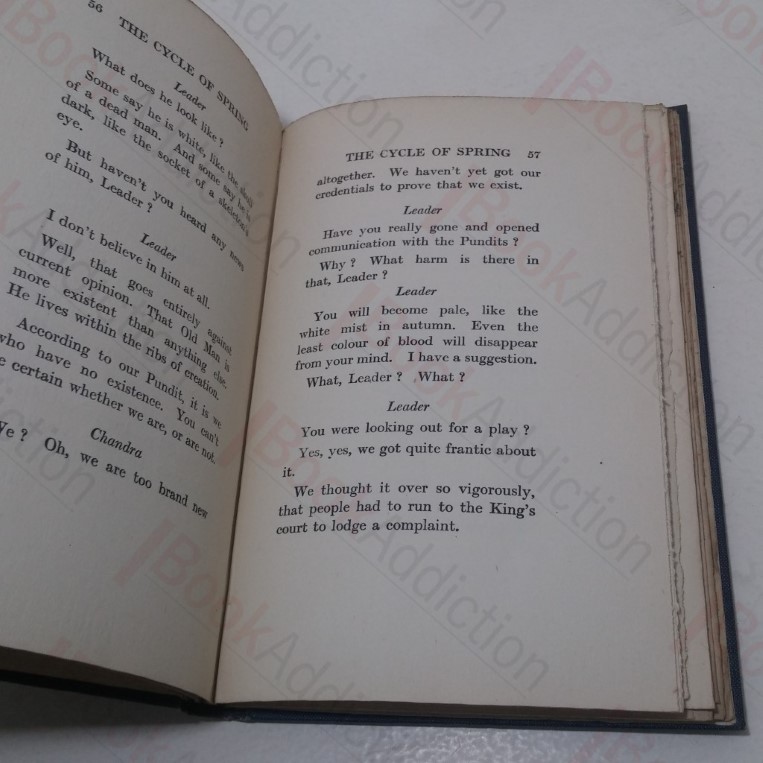 56 THE CYCLE OF SPRING
Leader
What does he look like ?
Some say he is white, like the skull
of a dead man. And some say he is
dark, like the socket of a skeleton's
eye.
But haven't you heard any news
of him, Leader ?
Leader
I don't believe in him at all.
Well, that goes entirely against
current opinion. That Old Man is
more existent than anything else.
He lives within the ribs of creation.
According to our Pundit, it is we
who have no existence. You can't
certain whether we are, or are not.
Chandra
We ? Oh, we are too brand new
THE CYCLE OF SPRING 57
altogether. We haven't yet got our
credentials to prove that we exist.
Leader
Have you really gone and opened
communication with the Pundits ?
Why ? What harm is there in
that, Leader ?
Leader
You will become pale, like the
white mist in autumn. Even the
least colour of blood will disappear
from your mind. I have a suggestion.
What, Leader ? What ?
Leader
You were looking out for a play ?
Yes, yes, we got quite frantic about
it.
We thought it over so vigorously,
that people had to run to the King's
court to lodge a complaint.
BookAddiction